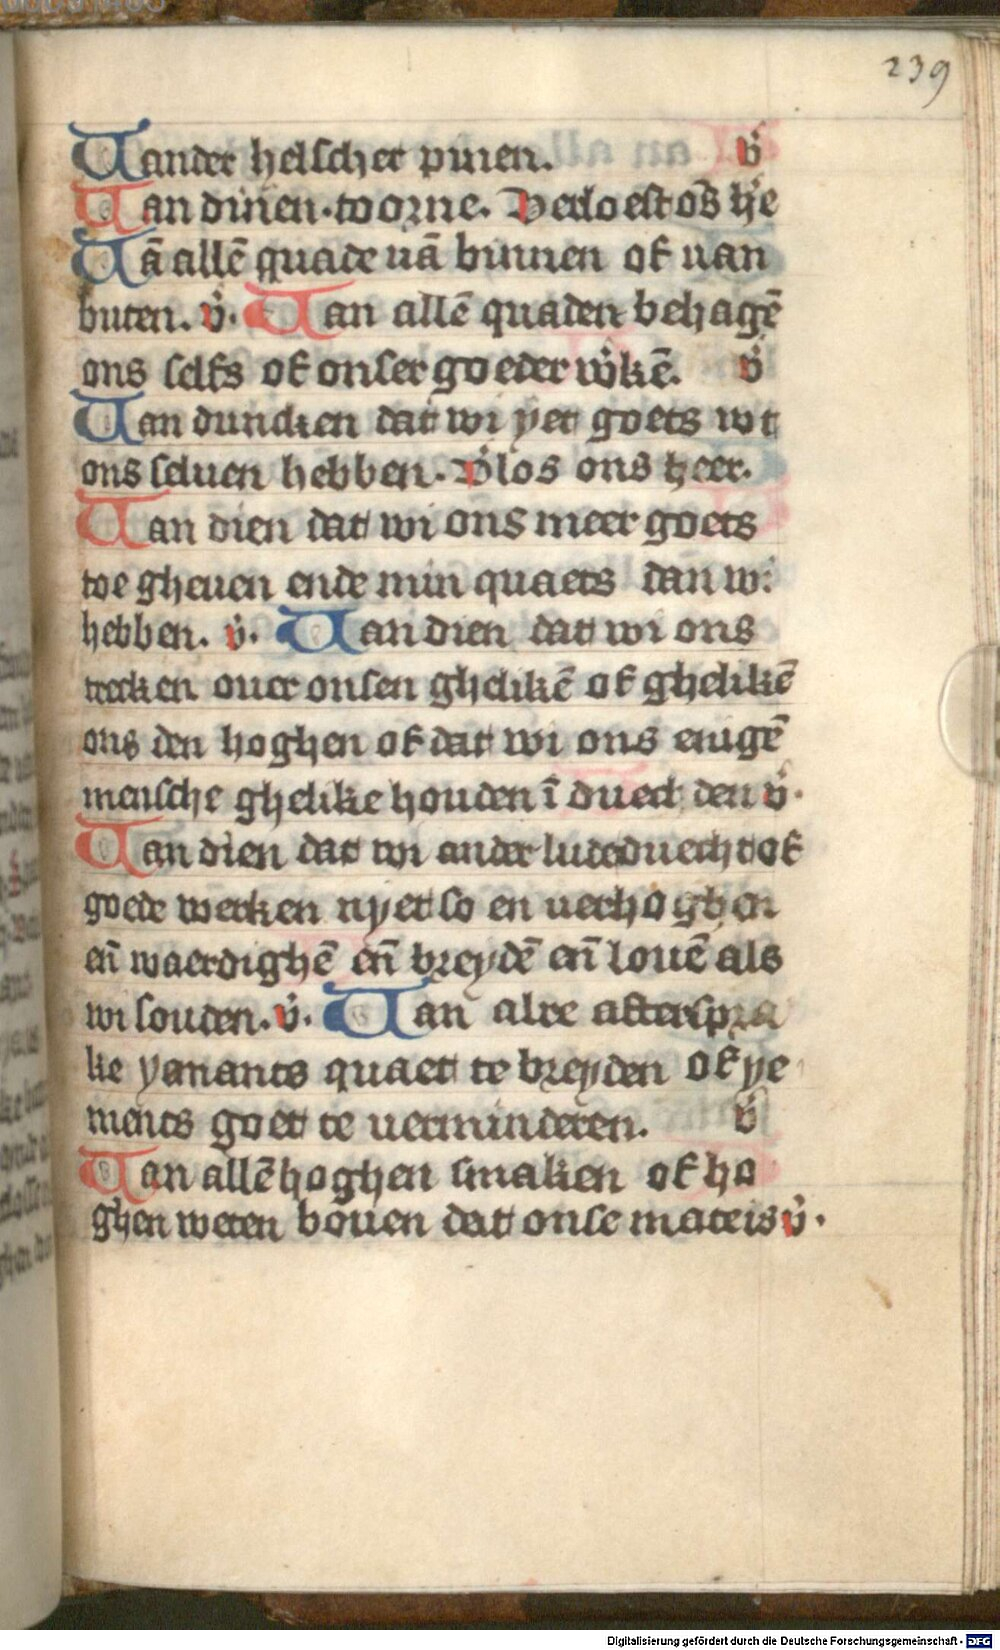 239
Uander helscher pinen. v̓
Uan dinen toorne. Verloest ōs h̓e
Uā allē quade uā binnen of uan
buten. v̓. Uan allē quaden behagē
ons selfs of onser goeder w̓kē. v̓
Uan duncken dat wi yet goets wt
ons seluen hebben. V̓los ons heer.
Uan dien dat wi ons meer goets
toe gheuen ende min quaets dan wi
hebben. v̓. Uan dien dat wi ons
trecken ouer onsen ghelikē of ghelikē
ons den hoghen of dat wi ons enigē
mensche ghelike houden ī duechden v̓.
Uan dien dat wi ander lude duecht of
goede werken nyet so en uerhoghen
eñ waerdighē eñ breydē eñ louē als
wi souden. v̓. Uan alre afterspra
ke yemants quaet te breyden of ye
ments goet te uerminderen. v̓
Uan allē hoghen smaken of ho
ghen weten bouen dat onse mate is v̓.
Digitalisierung gefördert durch die Deutsche Forschungsgemeinschaft - DFG